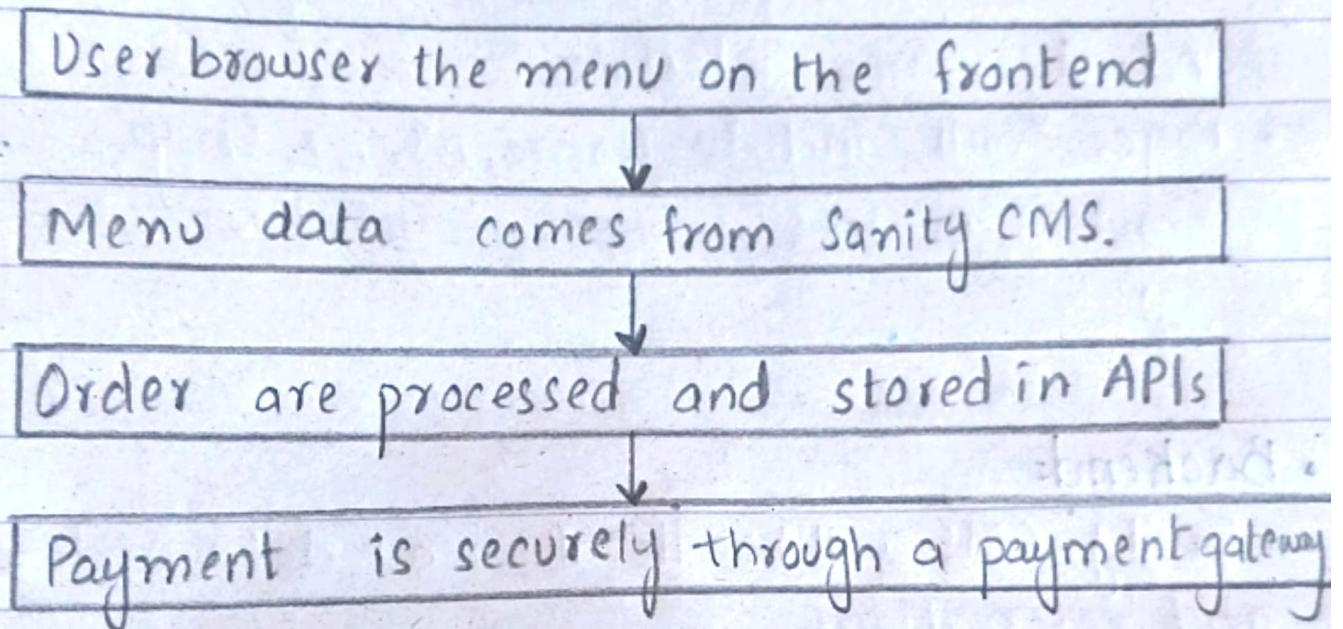 User browser the menu on the frontend
Menu data comes from Sanity CMS.
Order are processed and stored in APIs
Payment is securely through a payment gateway
• Backend: